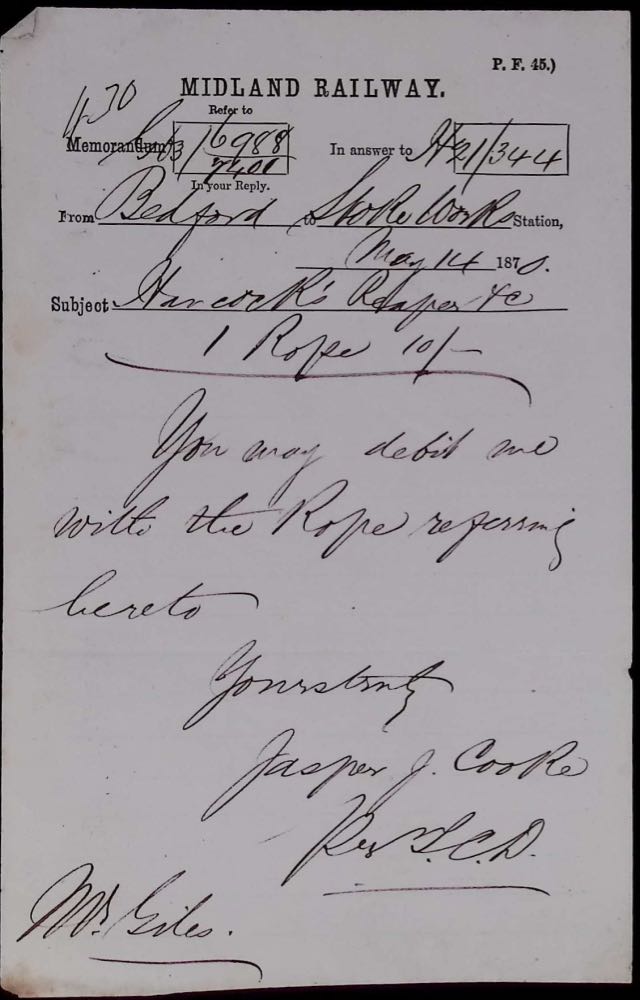 P. F. 45.)
MIDLAND RAILWAY.
Refer to
Memorandum 6988
7400
In answer to H21/344
In your Reply.
From Bedford to Stoke Works Station,
May 14 1870.
Subject Hancock's Reaper &c
1 Rope 10/-
You may debit me
with the Rope referring
hereto
Yours truly
Jasper J. Cooke
Per
Mr. Giles.